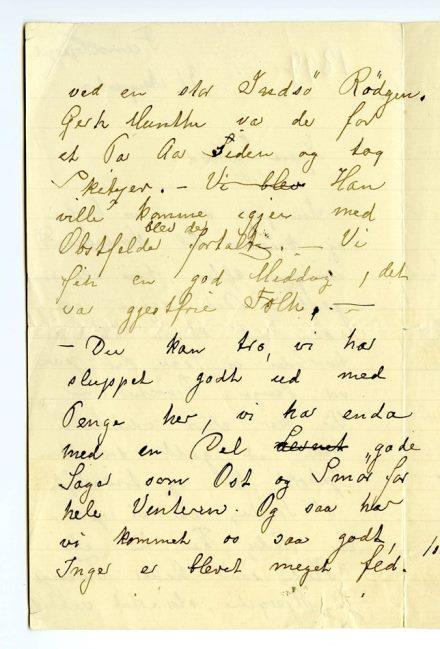 ved en stor Indsö Rödgen.
Gerh Munthe va de for
et Pa Aa Siden og tog
Skitser. – Vi blev Han
ville komme igjen med
blev det
Obstfelder fortalt. – Vi
fik en god Middag, det
va gjestfrie Folk, –
– Du kan tro, vi har
sluppet godt ud med
Penge her, vi har enda
med en Del "gode
Sager som Ost og Smör for
hele Vinteren. Og saa har
vi kommet os saa godt,
Inger er blevet meget fed.